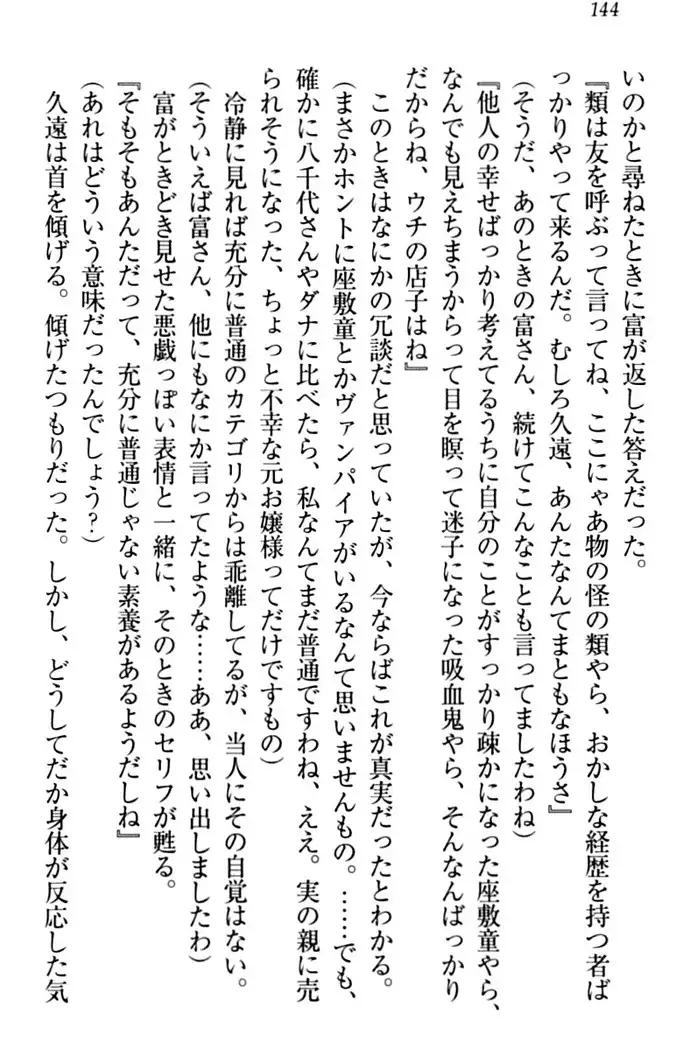 144
いのかと尋ねたときに富が返した答えだった。
『類は友を呼ぶって言ってね、ここにゃあ物の怪の類やら、おかしな経歴を持つ者ば
っかりやって来るんだ。むしろ久遠、あんたなんてまともなほうさ』
(そうだ、あのときの富さん、続けてこんなことも言ってましたわね)
『他人の幸せばっかり考えてるうちに自分のことがすっかり疎かになった座敷童やら、
なんでも見えちまうからって目を瞑って迷子になった吸血鬼やら、そんなんばっかり
だからね、ウチの店子はね』
このときはなにかの冗談だと思っていたが、今ならばこれが真実だったとわかる。
(まさかホントに座敷童とかヴァンパイアがいるなんて思いませんもの。……でも、
確かに八千代さんやダナに比べたら、私なんてまだ普通ですわね、ええ。実の親に売
られそうになった、ちょっと不幸な元お嬢様ってだけですもの)
冷静に見れば充分に普通のカテゴリからは乖離してるが、当人にその自覚はない。
(そういえば富さん、他にもなにか言ってたような……ああ、思い出しましたわ)
富がときどき見せた悪戯っぽい表情と一緒に、そのときのセリフが甦る。
『そもそもあんただって、充分に普通じゃない素養があるようだしね』
(あれはどういう意味だったんでしょう?)
久遠は首を傾げる。傾げたつもりだった。しかし、どうしてだか身体が反応した気